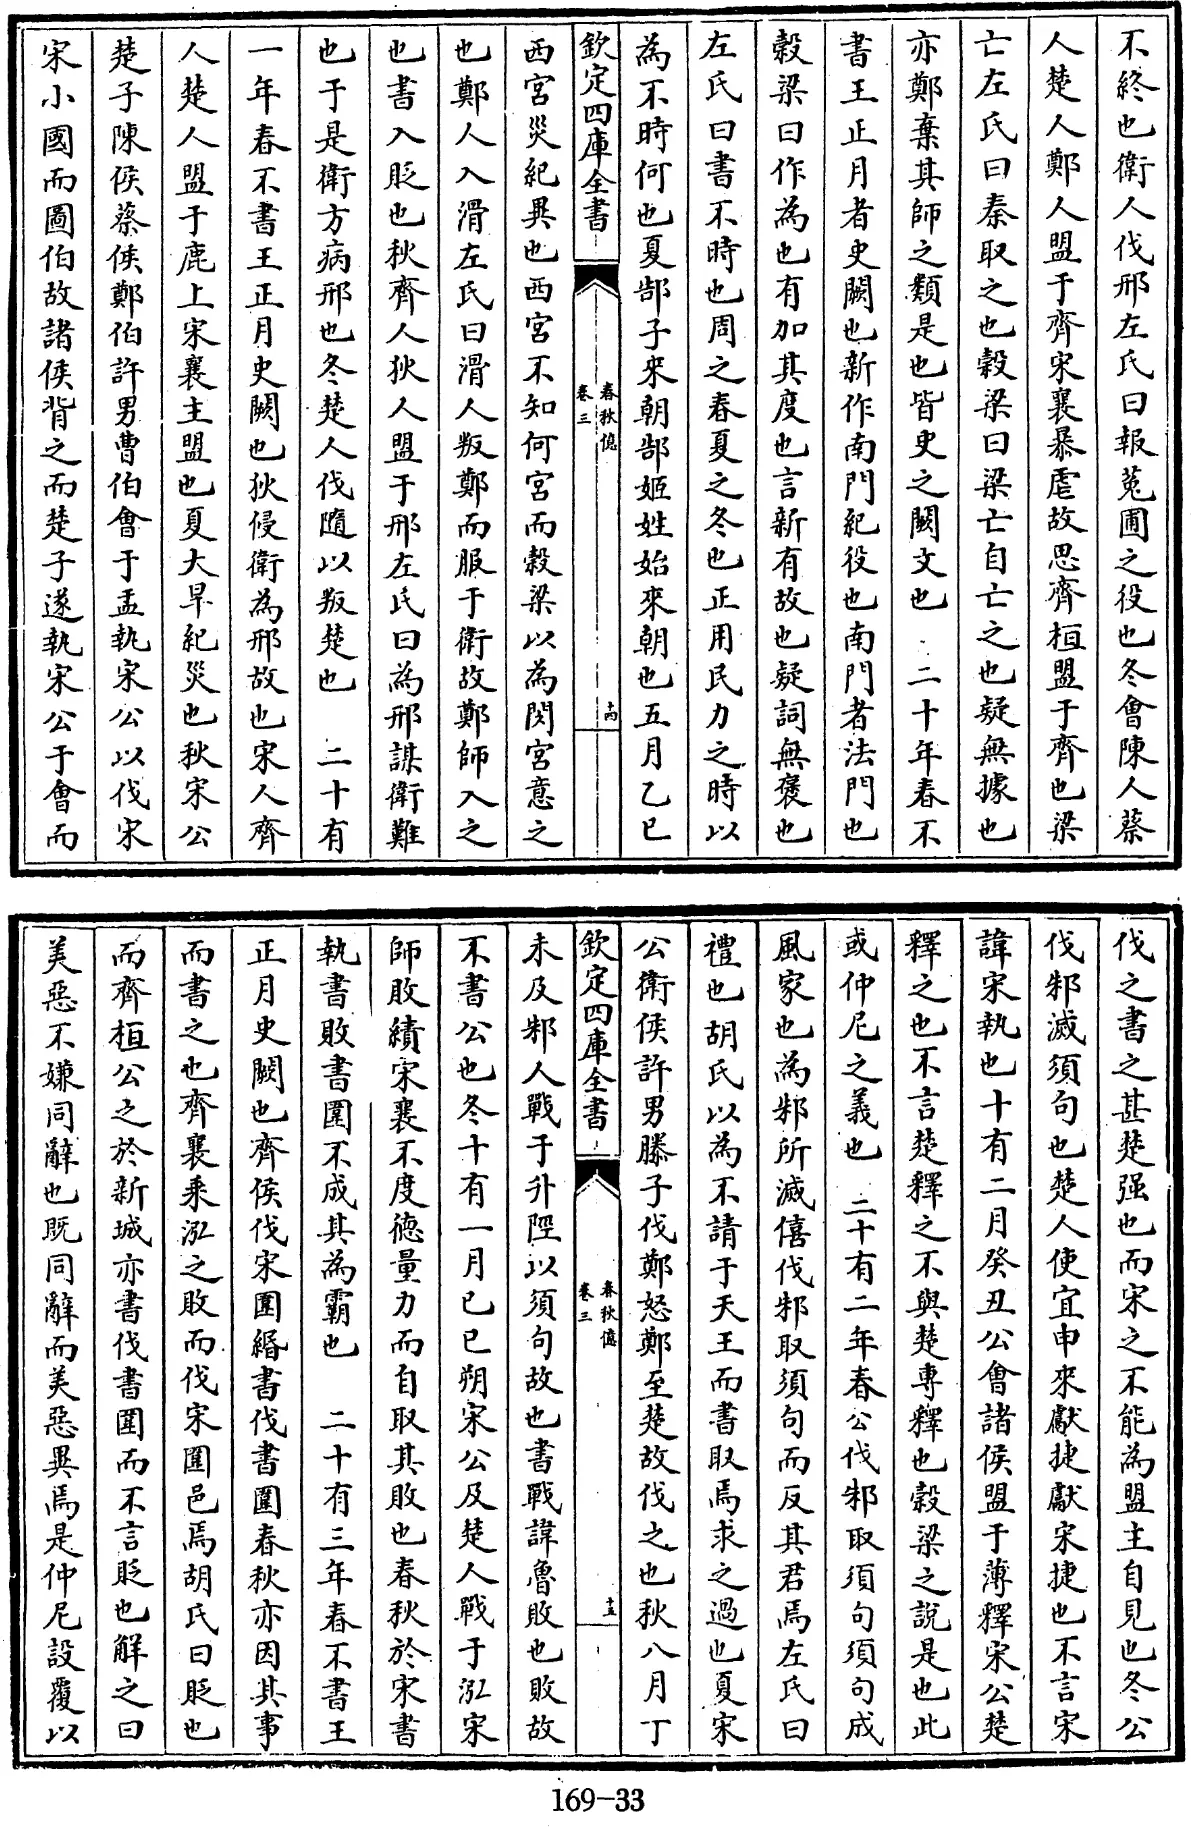 不終也衛人伐邢左氏曰報菟圃之役也冬會陳人蔡
人楚人鄭人盟于齊宋襄暴虐故思齊桓盟于齊也梁
亡左氏曰秦取之也穀梁曰梁亡自亡之也疑無據也
亦鄭棄其師之類是也皆史之闕文也 二十年春不
書王正月者史闕也新作南門紀役也南門者法門也
穀梁曰作為也有加其度也言新有故也疑詞無褒也
左氏曰書不時也周之春夏之冬也正用民力之時以
為不時何也夏郜子來朝郜姬姓始來朝也五月乙巳
欽定四庫全書
春秋億
卷三
十四
西宮災紀異也西宮不知何宮而穀梁以為閔宮意之
也鄭人入滑左氏曰滑人叛鄭而服于衛故鄭師入之
也書入貶也秋齊人狄人盟于邢左氏曰為邢謀衛難
也于是衛方病邢也冬楚人伐隨以叛楚也 二十有
一年春不書王正月史闕也狄侵衛為邢故也宋人齊
人楚人盟于鹿上宋襄主盟也夏大旱紀災也秋宋公
楚子陳侯蔡侯鄭伯許男曹伯會于盂執宋公以伐宋
宋小國而圖伯故諸侯背之而楚子遂執宋公于會而
伐之書之甚楚强也而宋之不能為盟主自見也冬公
伐邾滅須句也楚人使宜申來獻捷獻宋捷也不言宋
諱宋執也十有二月癸丑公會諸侯盟于薄釋宋公楚
釋之也不言楚釋之不與楚專釋也穀梁之說是也此
或仲尼之義也 二十有二年春公伐邾取須句須句成
風家也為邾所滅僖伐邾取須句而反其君焉左氏曰
禮也胡氏以為不請于天王而書取焉求之過也夏宋
公衛侯許男滕子伐鄭怒鄭至楚故伐之也秋八月丁
欽定四庫全書
春秋億
卷三
十五
未及邾人戰于升陘以須句故也書戰諱魯敗也敗故
不書公也冬十有一月己巳朔宋公及楚人戰于泓宋
師敗績宋襄不度德量力而自取其敗也春秋於宋書
執書敗書圍不成其為霸也 二十有三年春不書王
正月史闕也齊侯伐宋圍緡書伐書圍春秋亦因其事
而書之也齊襄乘泓之敗而伐宋圍邑焉胡氏曰貶也
而齊桓公之於新城亦書伐書圍而不言貶也解之曰
美惡不嫌同辭也既同辭而美惡異焉是仲尼設覆以
169-33